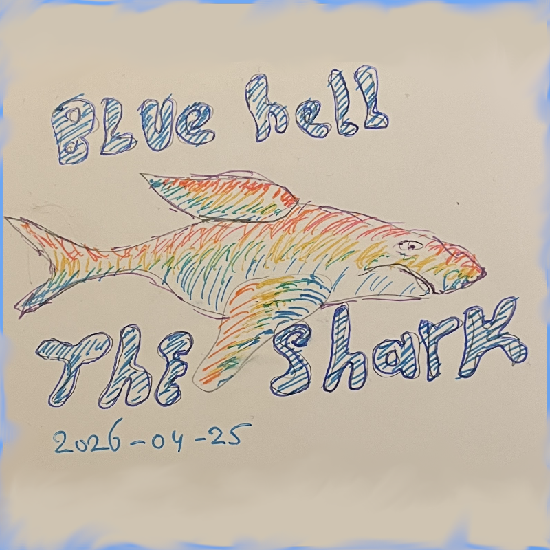 BLUe hell
ThE ShArK
2026-04-25